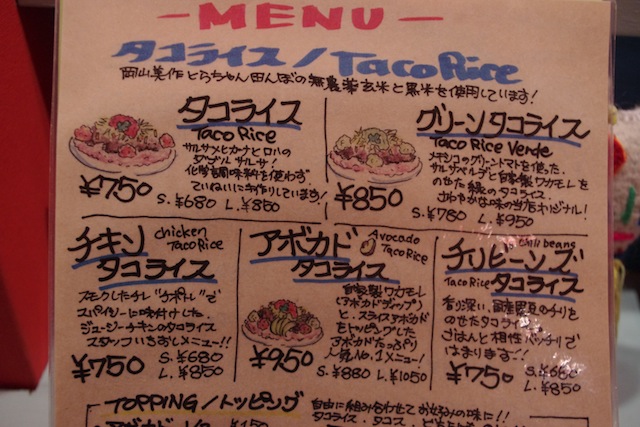 - MENU -
タコライス / Taco Rice
岡山美作とらちゃん田んぼの無農薬玄米と黒米を使用しています!
タコライス
Taco Rice
サルサメヒカーナとロハの
ダブルサルサ!
化学調味料を使わず
ていねいに手作りしています!
¥750
S.¥680 L.¥850
グリーンタコライス
Taco Rice Verde
メキシコのグリーントマトを使った
サルサベルデと自家製ワカモレを
のせた緑のタコライス。
さわやかな味の当店オリジナル!
¥850
S.¥780 L.¥950
チキン chicken
Taco Rice
タコライス
スモークしたチレ"チポトレ"で
スパイシーに味付けした
ジューシーチキンのタコライス
スタッフいちおしメニュー!!
¥750
S.¥680
L.¥850
アボカド Avocado
Taco Rice
タコライス
自家製ワカモレ
(アボカドディップ)
と、スライスアボカド
をトッピングした
アボカドたっぷり
No.1メニュー!
¥950
S.¥880 L.¥1050
chili beans
チリビーンズ
Taco Rice タコライス
香り深い、国産豆のチリを
のせたタコライス
ごはんと相性バッチリで
はまります!!
¥750
S.¥680
L.¥850
TOPPING/トッピング
自由に組み合わせてお好みの味に!!
アボカド 1/2 ¥150
タコライス、タコス